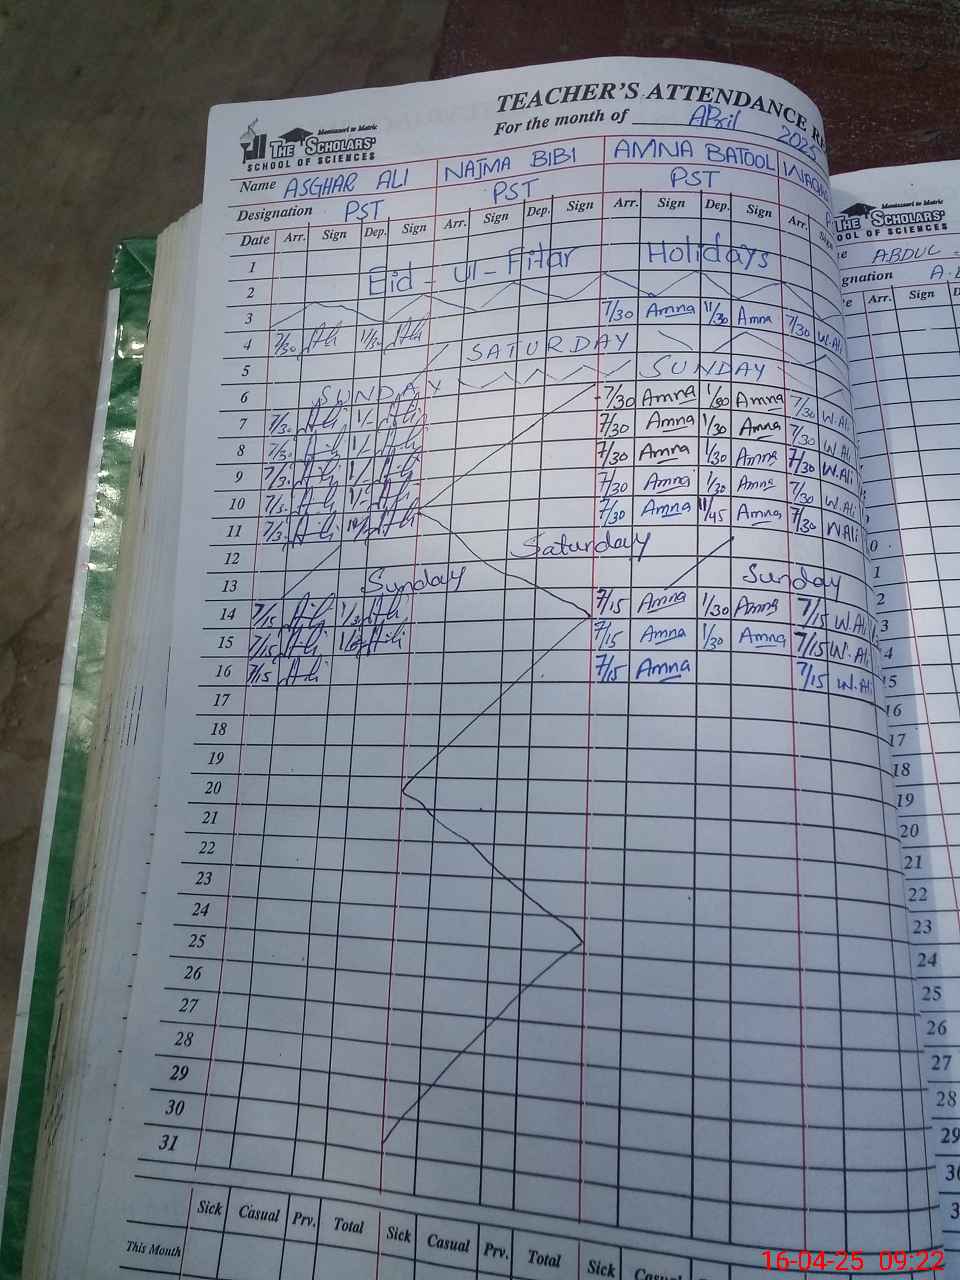 TEACHER'S ATTENDANCE
For the month of April 2025
Montessori to Matric
THE SCHOLARS'
SCHOOL OF SCIENCES
Name ASGHAR ALI NAJMA BIBI AMNA BATOOL
Designation PST PST PST
Date Arr. Sign Dep. Sign Arr. Sign Dep. Sign Arr. Sign Dep. Sign Arr.
1
2 Eid - Ul - Fitar Holidays
3 7/30 Amna 11/30 Amna 7/30 W.Ali
4 7/30 Ali 11/30 Ali SATURDAY
5 SUNDAY
6 SUNDAY 7/30 Amna 1/30 Amna 7/30 W.Ali
7 Ali Ali 7/30 Amna 1/30 Amna 7/30 W.Ali
8 Ali Ali 7/30 Amna 1/30 Amna 7/30 W.Ali
9 Ali Ali 7/30 Amna 1/30 Amna 7/30 W.Ali
10 Ali Ali 7/30 Amna 11/45 Amna 7/30 W.Ali
11 Ali Ali
12 Saturday
13 Sunday Sunday
14 7/15 Ali 1/30 Ali 7/15 Amna 1/30 Amna 7/15 W.Ali
15 7/15 Ali Ali 7/15 Amna 1/30 Amna 7/15 W.Ali
16 7/15 Ali 7/15 Amna 7/15 W.Ali
17
18
19
20
21
22
23
24
25
26
27
28
29
30
31
Sick Casual Prv. Total Sick Casual Prv. Total Sick Casual
This Month
Montessori to Matric
THE SCHOLARS'
OOL OF SCIENCES
ABDUL
gnation
Arr. Sign
1
2
3
4
15
16
17
18
19
20
21
22
23
24
25
26
27
28
29
16-04-25 09:22